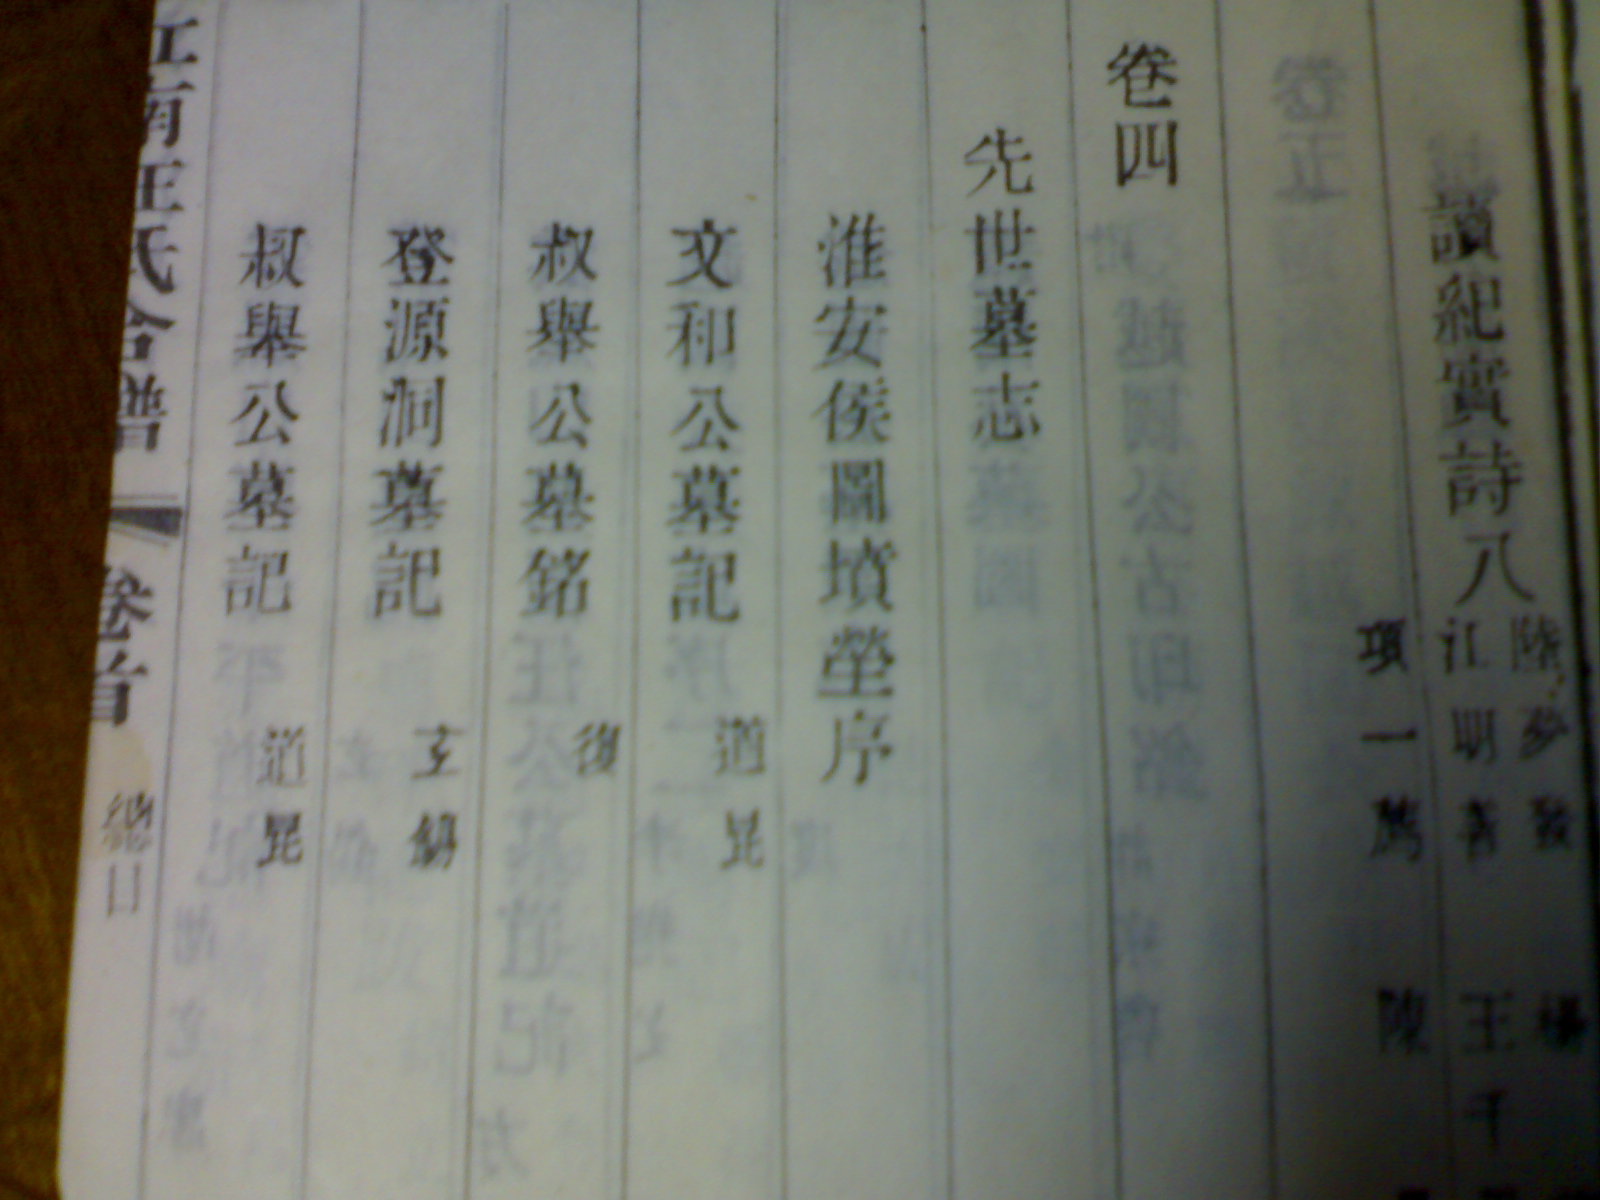 讀紀實詩八
陸夢發
江明善 王千
項一 陳
卷四
先世墓志
淮安侯圖墳塋序
文和公墓記 道昆
叔舉公墓銘 復
登源洞墓記 玄錫
叔舉公墓記 道昆
江南汪氏合譜 卷首 總目